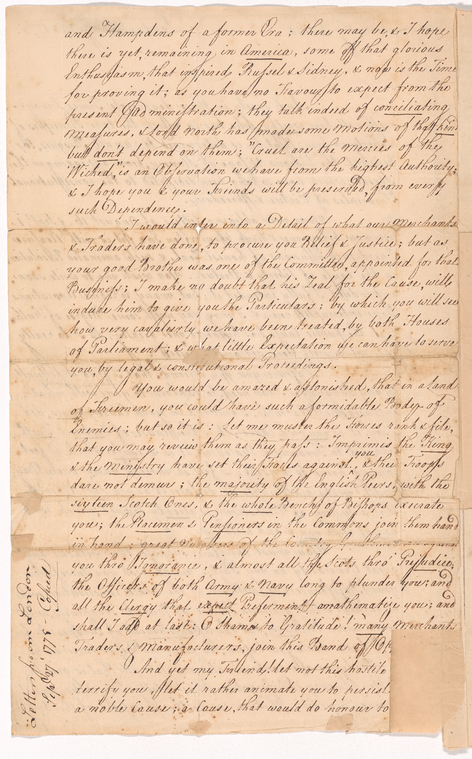 and Hampdens of a former Era: there may be, & I hope
there is yet, remaining in America, some of that glorious
Enthusiasm, that inspired Russel & Sidney, & now is the Time
for proving it; as you have no Favours to expect from the
present Administration; they talk indeed of conciliating
Measures, & Lord North has made some motions of that kind
but don't depend on them; "Cruel are the Mercies of the
Wicked," is an Observation we have from the highest Authority;
& I hope you & your Friends will be preserved from every
such Dependence.
I would enter into a Detail of what our Merchants
& Traders have done, to procure you Relief & justice; but as
your good Brother was one of the Committee, appointed for that
Business; I make no doubt that his Zeal for the Cause, will
induce him to give you the Particulars: by which you will see
how very cavalierly we have been treated, by both Houses
of Parliament; & what little Expectation we can have to serve
you, by legal & constitutional Proceedings.
You would be amazed & astonished, that in a land
of Freemen, you could have such a formidable Body of
Enemies; but so it is: Let me muster the Forces rank & file,
that you may review them as they pass: Imprimis the King,
& the Ministry have set their faces against you, & their Troops
dare not demur; the majority of the English Peers, with the
sixteen Scotch Ones, & the whole Bench of Bishops execrate
you; the Placemen & Pensioners in the Commons join them hand
in hand; great Numbers of the Country
you thro' Ignorance, & almost all the Scots thro' Prejudice,
the Officers of both Army & Navy long to plunder you; and
all the Clergy that expect Preferment anathematize you; and
shall I add at last; O Shame to Gratitude! many Merchants
Traders, & Manufacturers, join this Band of
And yet my Friend! let not this hostile
terrify you, let it rather animate you to persist
a noble Cause; a Cause, that would do honour to
Letter from London
Sepr 27 1775 -